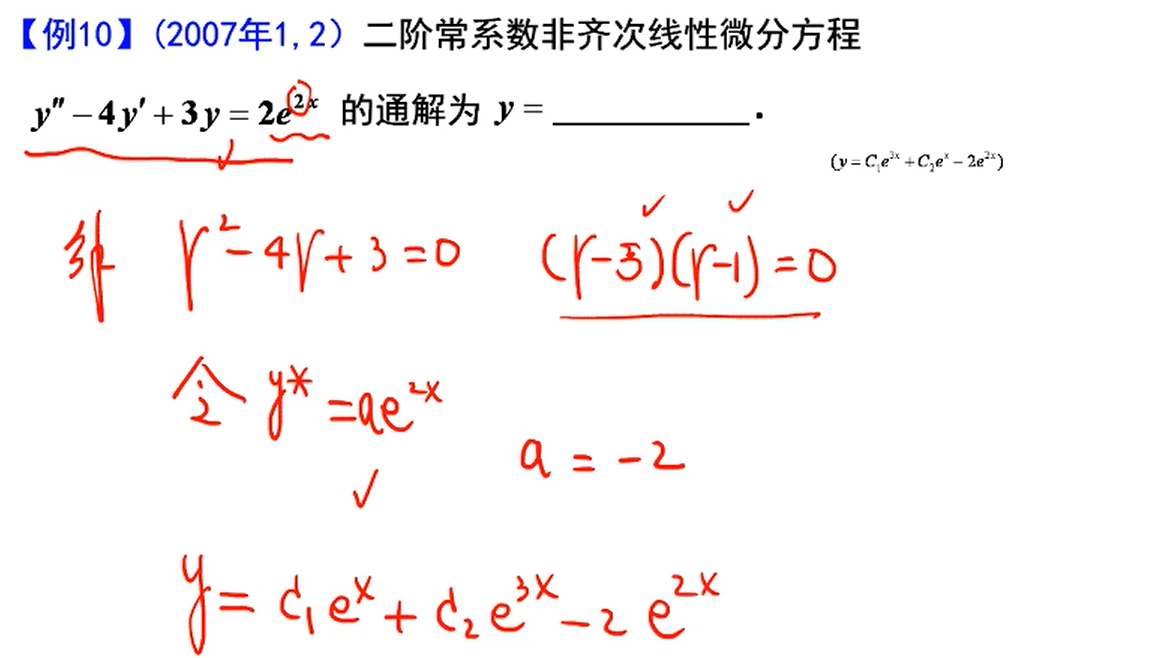 【例10】(2007年1,2) 二阶常系数非齐次线性微分方程
y″ − 4y′ + 3y = 2e^{2x} 的通解为 y = ___________.
(y = C₁e^{3x} + C₂e^x − 2e^{2x})
解 r² − 4r + 3 = 0 (r−3)(r−1) = 0
令 y* = ae^{2x}
a = −2
y = C₁e^x + C₂e^{3x} − 2e^{2x}